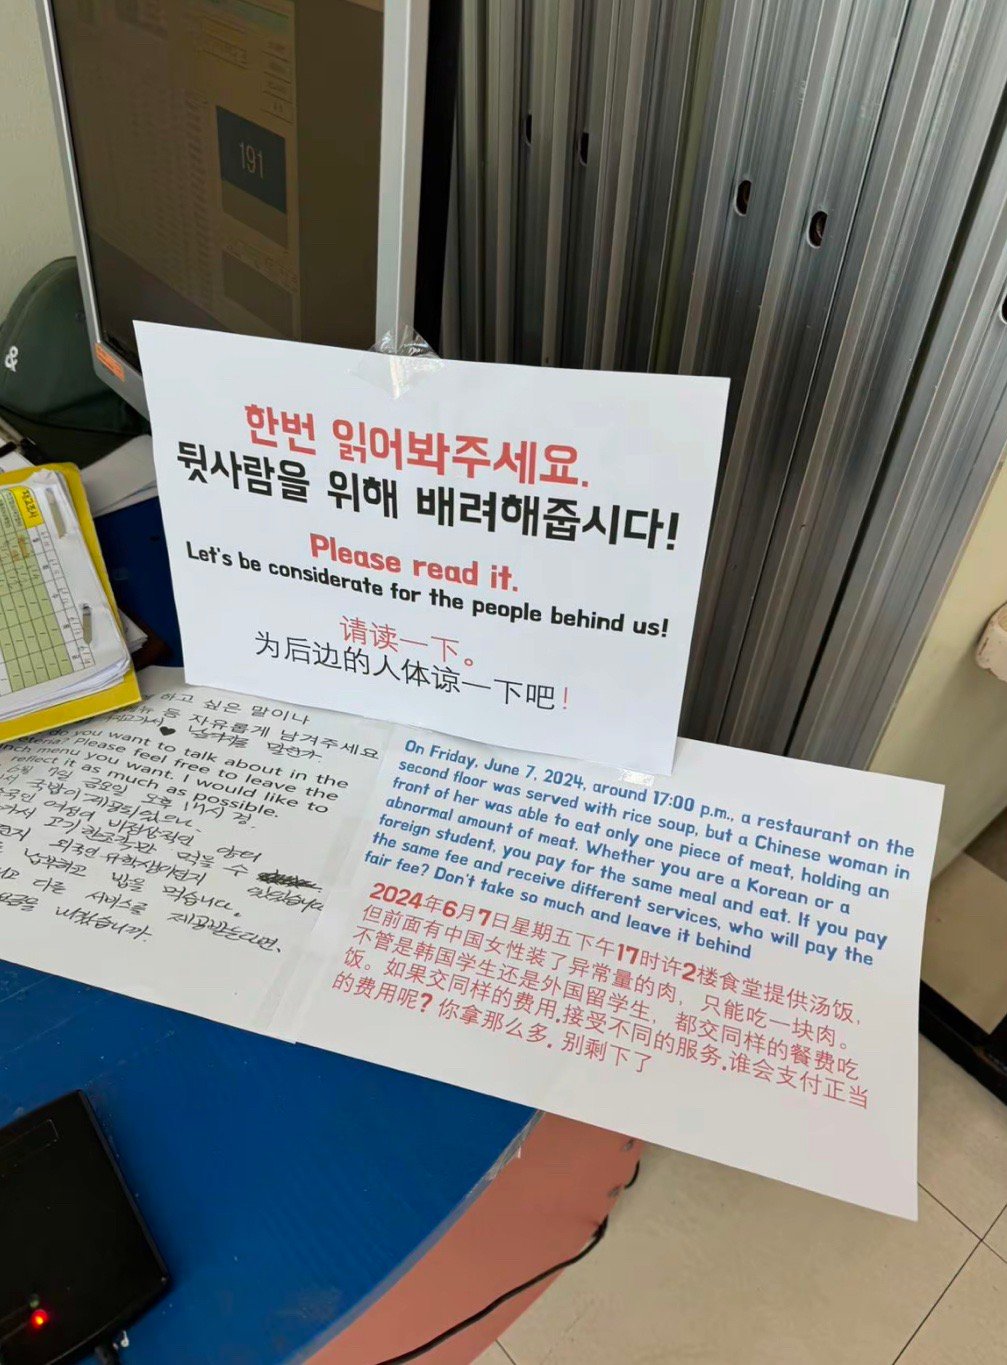 191
한번 읽어봐주세요.
뒷사람을 위해 배려해줍시다!
Please read it.
Let's be considerate for the people behind us!
请读一下。
为后边的人体谅一下吧！
하고 싶은 말이나
등 자유롭게 남겨주세요
do you want to talk about in the
Please feel free to leave the
menu you want. I would like to
reflect it as much as possible.
금요일 오후 17시 경.
국밥이 제공되었으나
여성이 비정상적인 양의
고기 한조각만 먹을 수
외국인 유학생이던지
밥을 먹습니다.
다른 서비스를 제공받는다면,
On Friday, June 7, 2024, around 17:00 p.m., a restaurant on the
second floor was served with rice soup, but a Chinese woman in
front of her was able to eat only one piece of meat, holding an
abnormal amount of meat. Whether you are a Korean or a
foreign student, you pay for the same meal and eat. If you pay
the same fee and receive different services, who will pay the
fair fee? Don't take so much and leave it behind
2024年6月7日星期五下午17时许2楼食堂提供汤饭，
但前面有中国女性装了异常量的肉，只能吃一块肉。
不管是韩国学生还是外国留学生，都交同样的餐费吃
饭。如果交同样的费用.接受不同的服务.谁会支付正当
的费用呢? 你拿那么多. 别剩下了
&